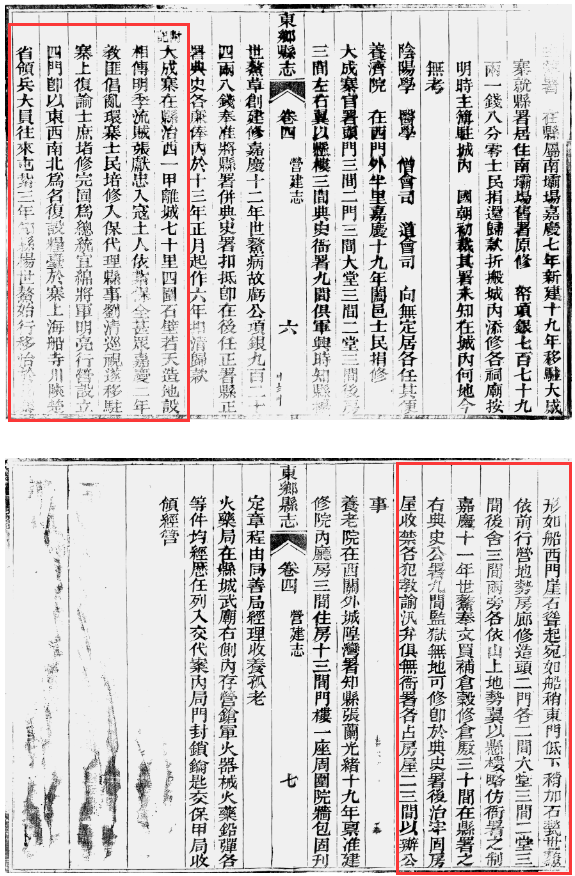 署 在縣屬南壩場嘉慶七年新建十九年移駐大成
寨就縣署居住南壩場舊署原修 帑項銀七百七十九
兩一錢八分零士民捐還歸款折搬城內添修各祠廟按
明時主簿駐城內 國朝初裁其署未知在城內何地今
無考
陰陽學 醫學 僧會司 道會司 向無定居各任其便
養濟院 在西門外半里嘉慶十九年闔邑士民捐修
大成寨官署頭門三間二門三間大堂三間二堂三間後房
三間左右翼以懸樓三間典史衙署九間俱軍興時知縣
東鄉縣志 卷四 營建志 六
世鰲草創建修嘉慶十二年世鰲病故虧公項銀九百二十
四兩八錢奉准將縣署併典史署扣抵即在後任正署縣正
署典史各廉俸內於十三年正月起作六年扣清歸款
附記
大成寨在縣治西一甲離城七十里四圍石壁若天造地設
相傳明季流賊張獻忠入寇土人依寨保全甚眾嘉慶二年
教匪倡亂環寨士民培修入保代理縣事劉清巡視遂移駐
寨上復諭士庶堵修完固為總統宜綿將軍明亮行營設立
四門卽以東西南北為名復設糧臺於寨上海船寺川陝楚
省領兵大員往來屯紮三年知縣楊世鰲始行移治於
形如船西門崖石聳起宛如船稍東門低下稍加石甃世鰲
依前行營地勢房廊修造頭二門各二間大堂三間二堂三
間後舍三間兩旁各依山上地勢翼以懸樓略仿衙署之制
嘉慶十一年世鰲奉文買補倉穀修倉廒三十間在縣署之
右典史公署九間監獄無地可修即於典史署後治牢固房
屋收禁各犯教諭汛弁俱無衙署各占房屋二三間以辦公
事
養老院在西關外城隍灣署知縣張蘭光緒十九年稟准建
修院內廳房三間住房十三間門樓一座周圍院牆包固刋
東鄉縣志 卷四 營建志 七
定章程由同善局經理收養孤老
火藥局在縣城武廟右側內存營鎗軍火器械火藥鉛彈各
等件均經歷任列入交代案內局門封鎖鑰匙交保甲局收
領經管